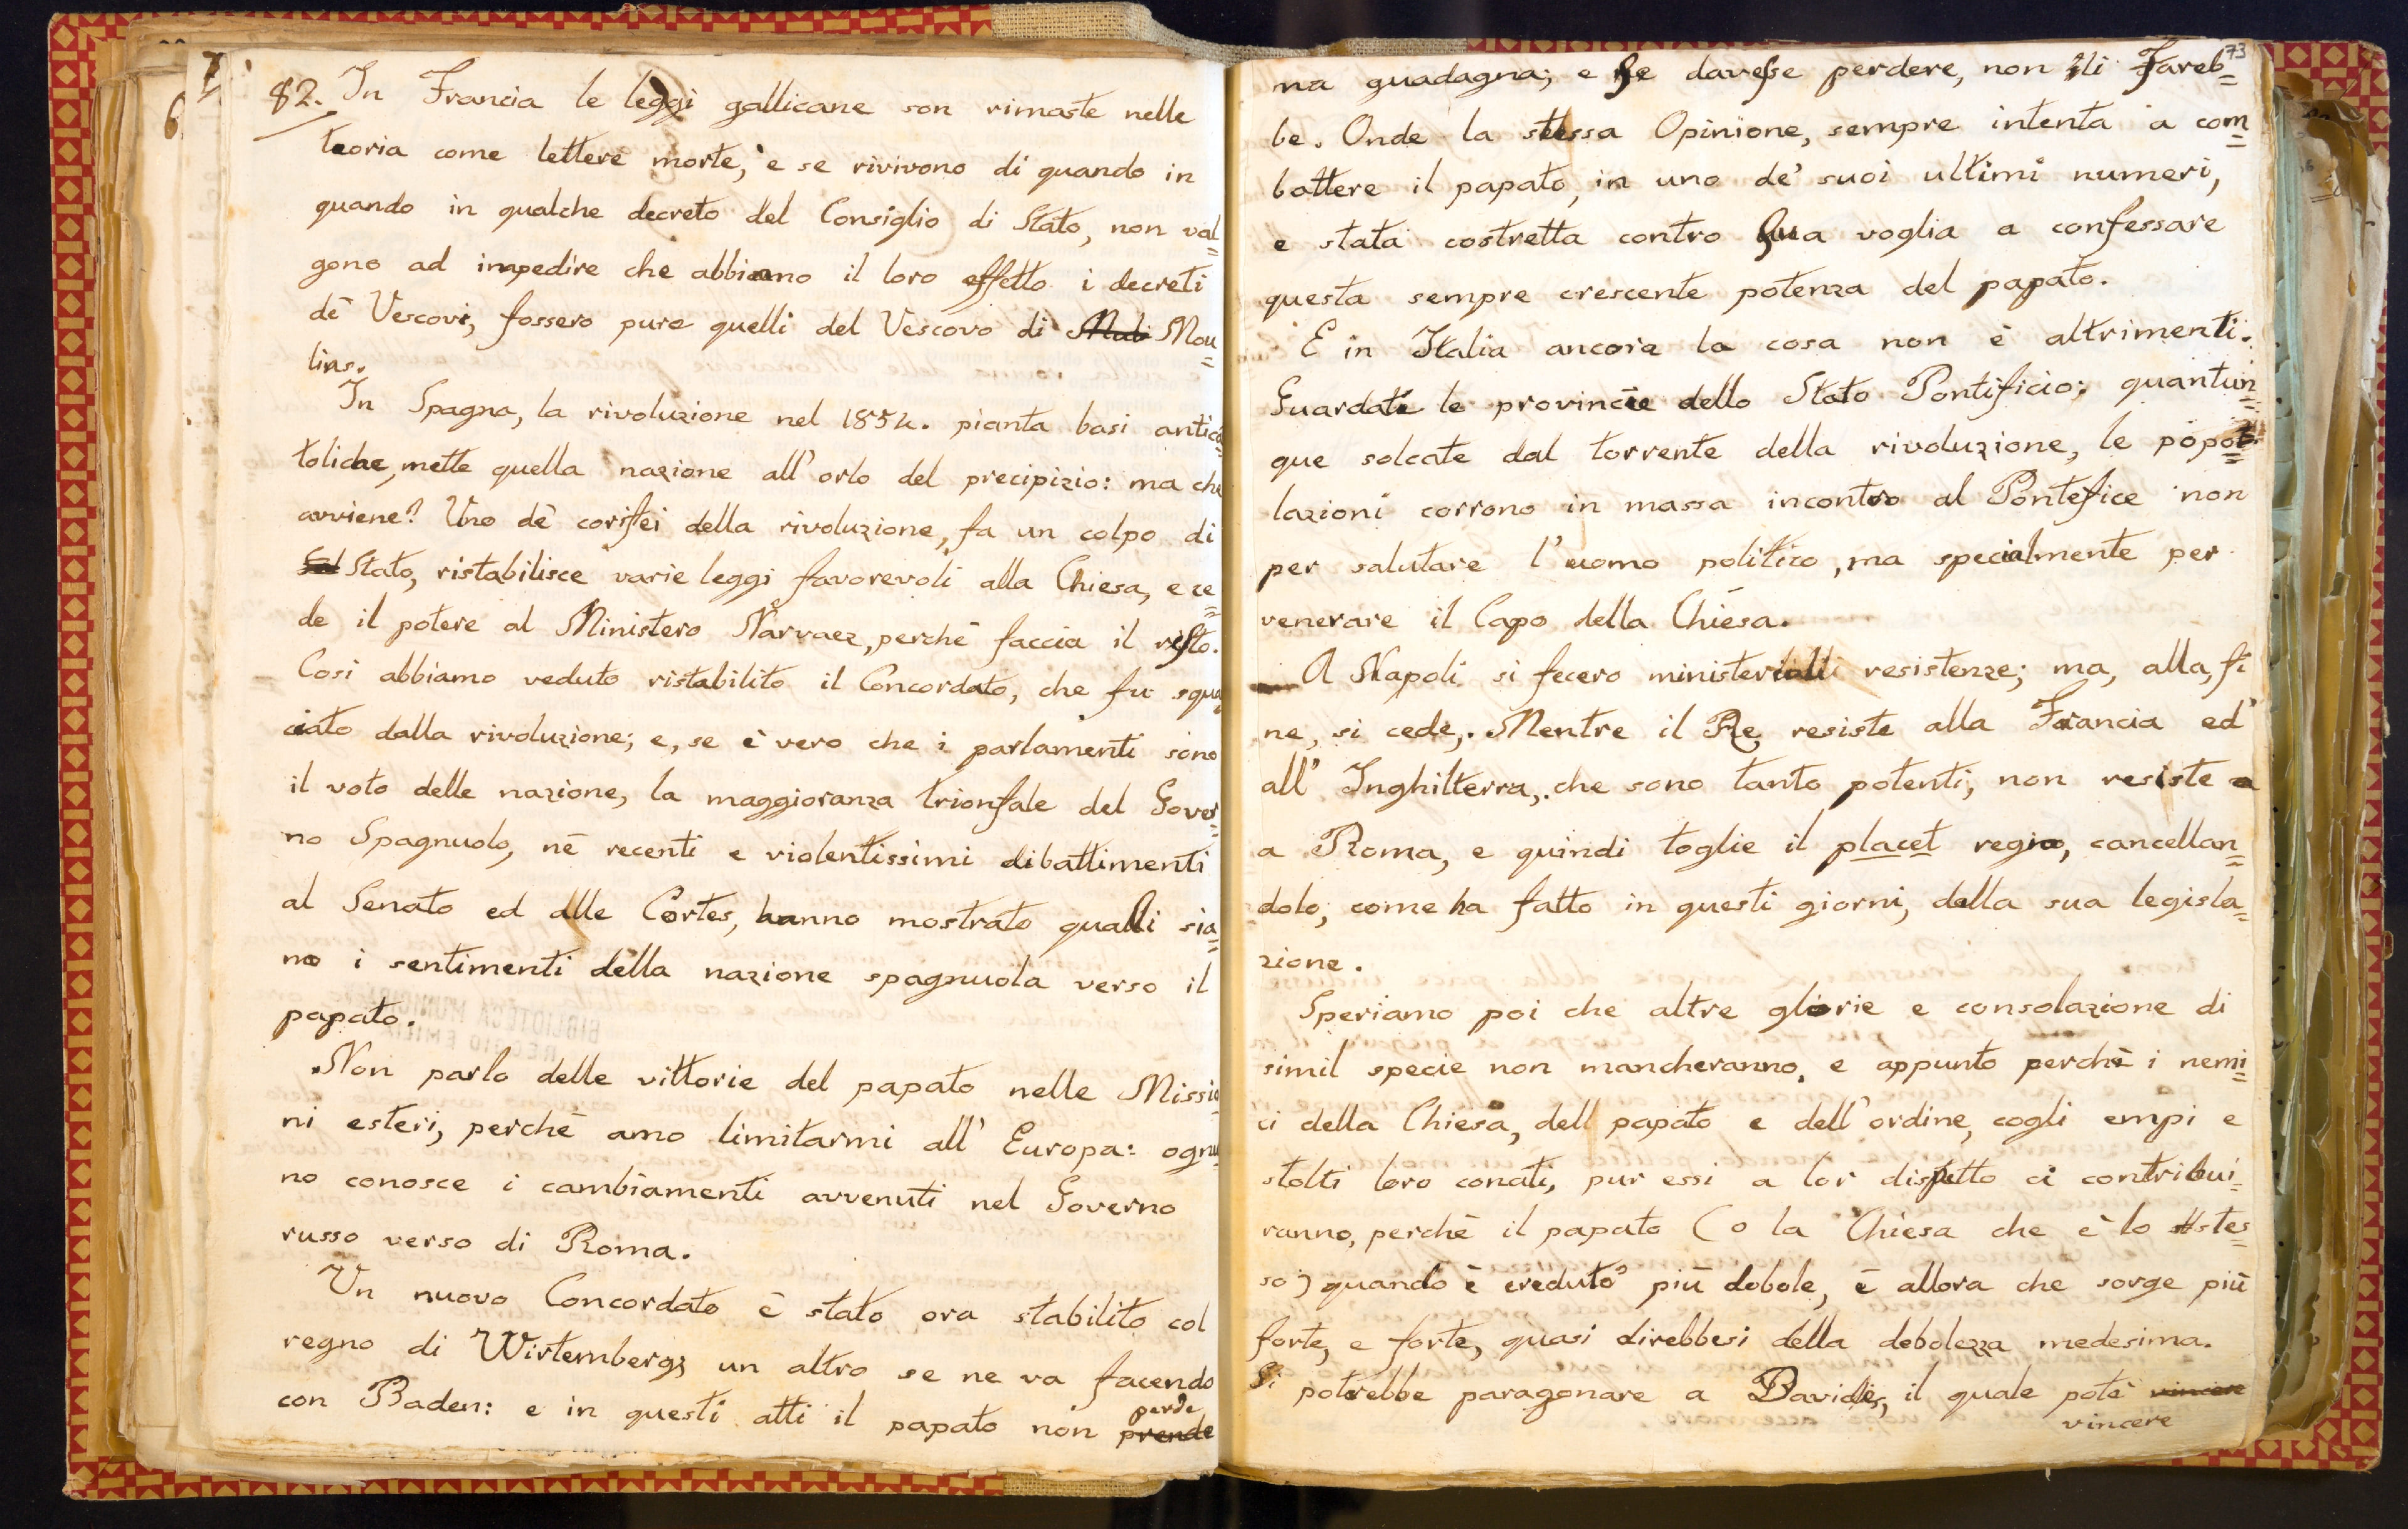 82. In Francia le leggi gallicane son rimaste nelle
teoria come lettere morte, e se rivivono di quando in
quando in qualche decreto del Consiglio di Stato, non val=
gono ad impedire che abbiano il loro effetto i decreti
dè Vescovi, fossero pure quelli del Vescovo di Mou=
lins.
In Spagna, la rivoluzione nel 1854. pianta basi antica=
toliche, mette quella nazione all'orlo del precipizio: ma che
avviene? Uno dè corifei della rivoluzione, fa un colpo di
Stato, ristabilisce varie leggi favorevoli alla Chiesa, e ce=
de il potere al Ministero Narvaez, perchè faccia il resto.
Cosi abbiamo veduto ristabilito il Concordato, che fu squa=
ciato dalla rivoluzione; e, se è vero che i parlamenti sono
il voto delle nazione, la maggioranza trionfale del Gover=
no Spagnuolo, nè recenti e violentissimi dibattimenti
al Senato ed alle Cortes, hanno mostrato quali sia=
no i sentimenti della nazione spagnuola verso il
papato.
Non parlo delle vittorie del papato nelle Missio=
ni esteri, perchè amo limitarmi all' Europa: ognu=
no conosce i cambiamenti avvenuti nel Governo
russo verso di Roma.
Un nuovo Concordato è stato ora stabilito col
regno di Wirtemberg; un altro se ne va facendo
con Baden: e in questi atti il papato non prende perde
73
ma guadagna; e se davesse perdere, non li Fareb=
be. Onde la stessa Opinione, sempre intenta a com=
battere il papato, in uno de' suoi ultimi numeri,
e stata costretta contro sua voglia a confessare
questa sempre crescente potenza del papato.
E in Italia ancora la cosa non è altrimenti.
Guardate le provincie dello Stato Pontificio: quantun=
que solcate dal torrente della rivoluzione, le popo=
lazioni corrono in massa incontro al Pontefice non
per salutare l'uomo politico, ma specialmente per
venerare il Capo della Chiesa.
A Napoli si fecero ministeriali resistenze; ma, alla fi
ne, si cede,. Mentre il Re resiste alla Francia ed
all' Inghilterra, che sono tanto potenti, non resiste a
a Roma, e quindi toglie il placet regio, cancellan=
dolo, come ha fatto in questi giorni, dalla sua legisla=
zione.
Speriamo poi che altre glorie e consolazione di
simil specie non mancheranno, e appunto perchè i nemi=
ci della Chiesa, dell papato e dell'ordine, cogli empi e
stolti loro conati, pur essi a lor dispetto ci contribui=
ranno, perchè il papato (o la Chiesa che è lo stes=
so) quando è creduto più debole, è allora che sorge più
forte, e forte, quasi direbbesi della debolezza medesima.
Si potrebbe paragonare a Davide, il quale potè vincere
vincere